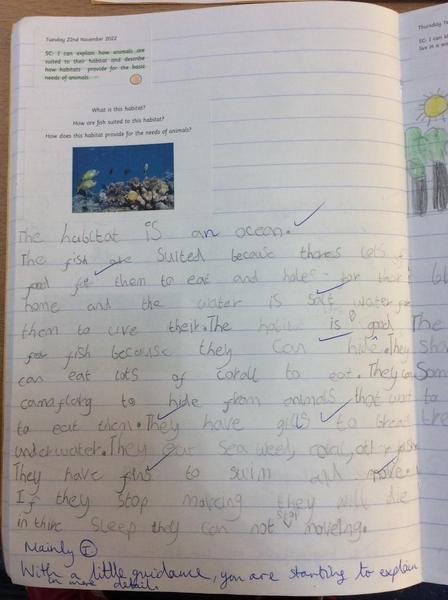 Tuesday 22nd November 2022
SC: I can explain how animals are
suited to their habitat and describe
how habitats provide for the basic
needs of animals.
What is this habitat?
How are fish suited to this habitat?
How does this habitat provide for the needs of animals?
The habitat is an ocean.
The fish are suited because theres lots
food for them to eat and holes for their
home and the water is salt water for
them to live their. The habitat is good
for fish because they can hide. They
can eat lots of corall to eat. They can
camaflarg to hide from animals that want to
to eat them. They have gills to breath
underwater. They eat sea weed, coral, other fish.
They have fins to swim and move.
If they stop moveing they will die
in there sleep they can not stop moveing.
Mainly I
With a little guidance, you are starting to explain
in more detail.
Thursday
SC: I can
live in a
The
Some
to